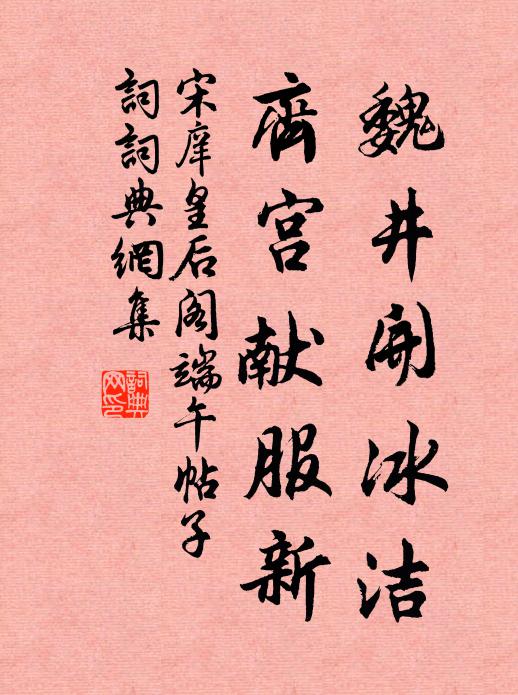 魏井開冰洁
齊宫献服新
宋庠皇后阁端午帖子
詞詞典網集
詞典网印